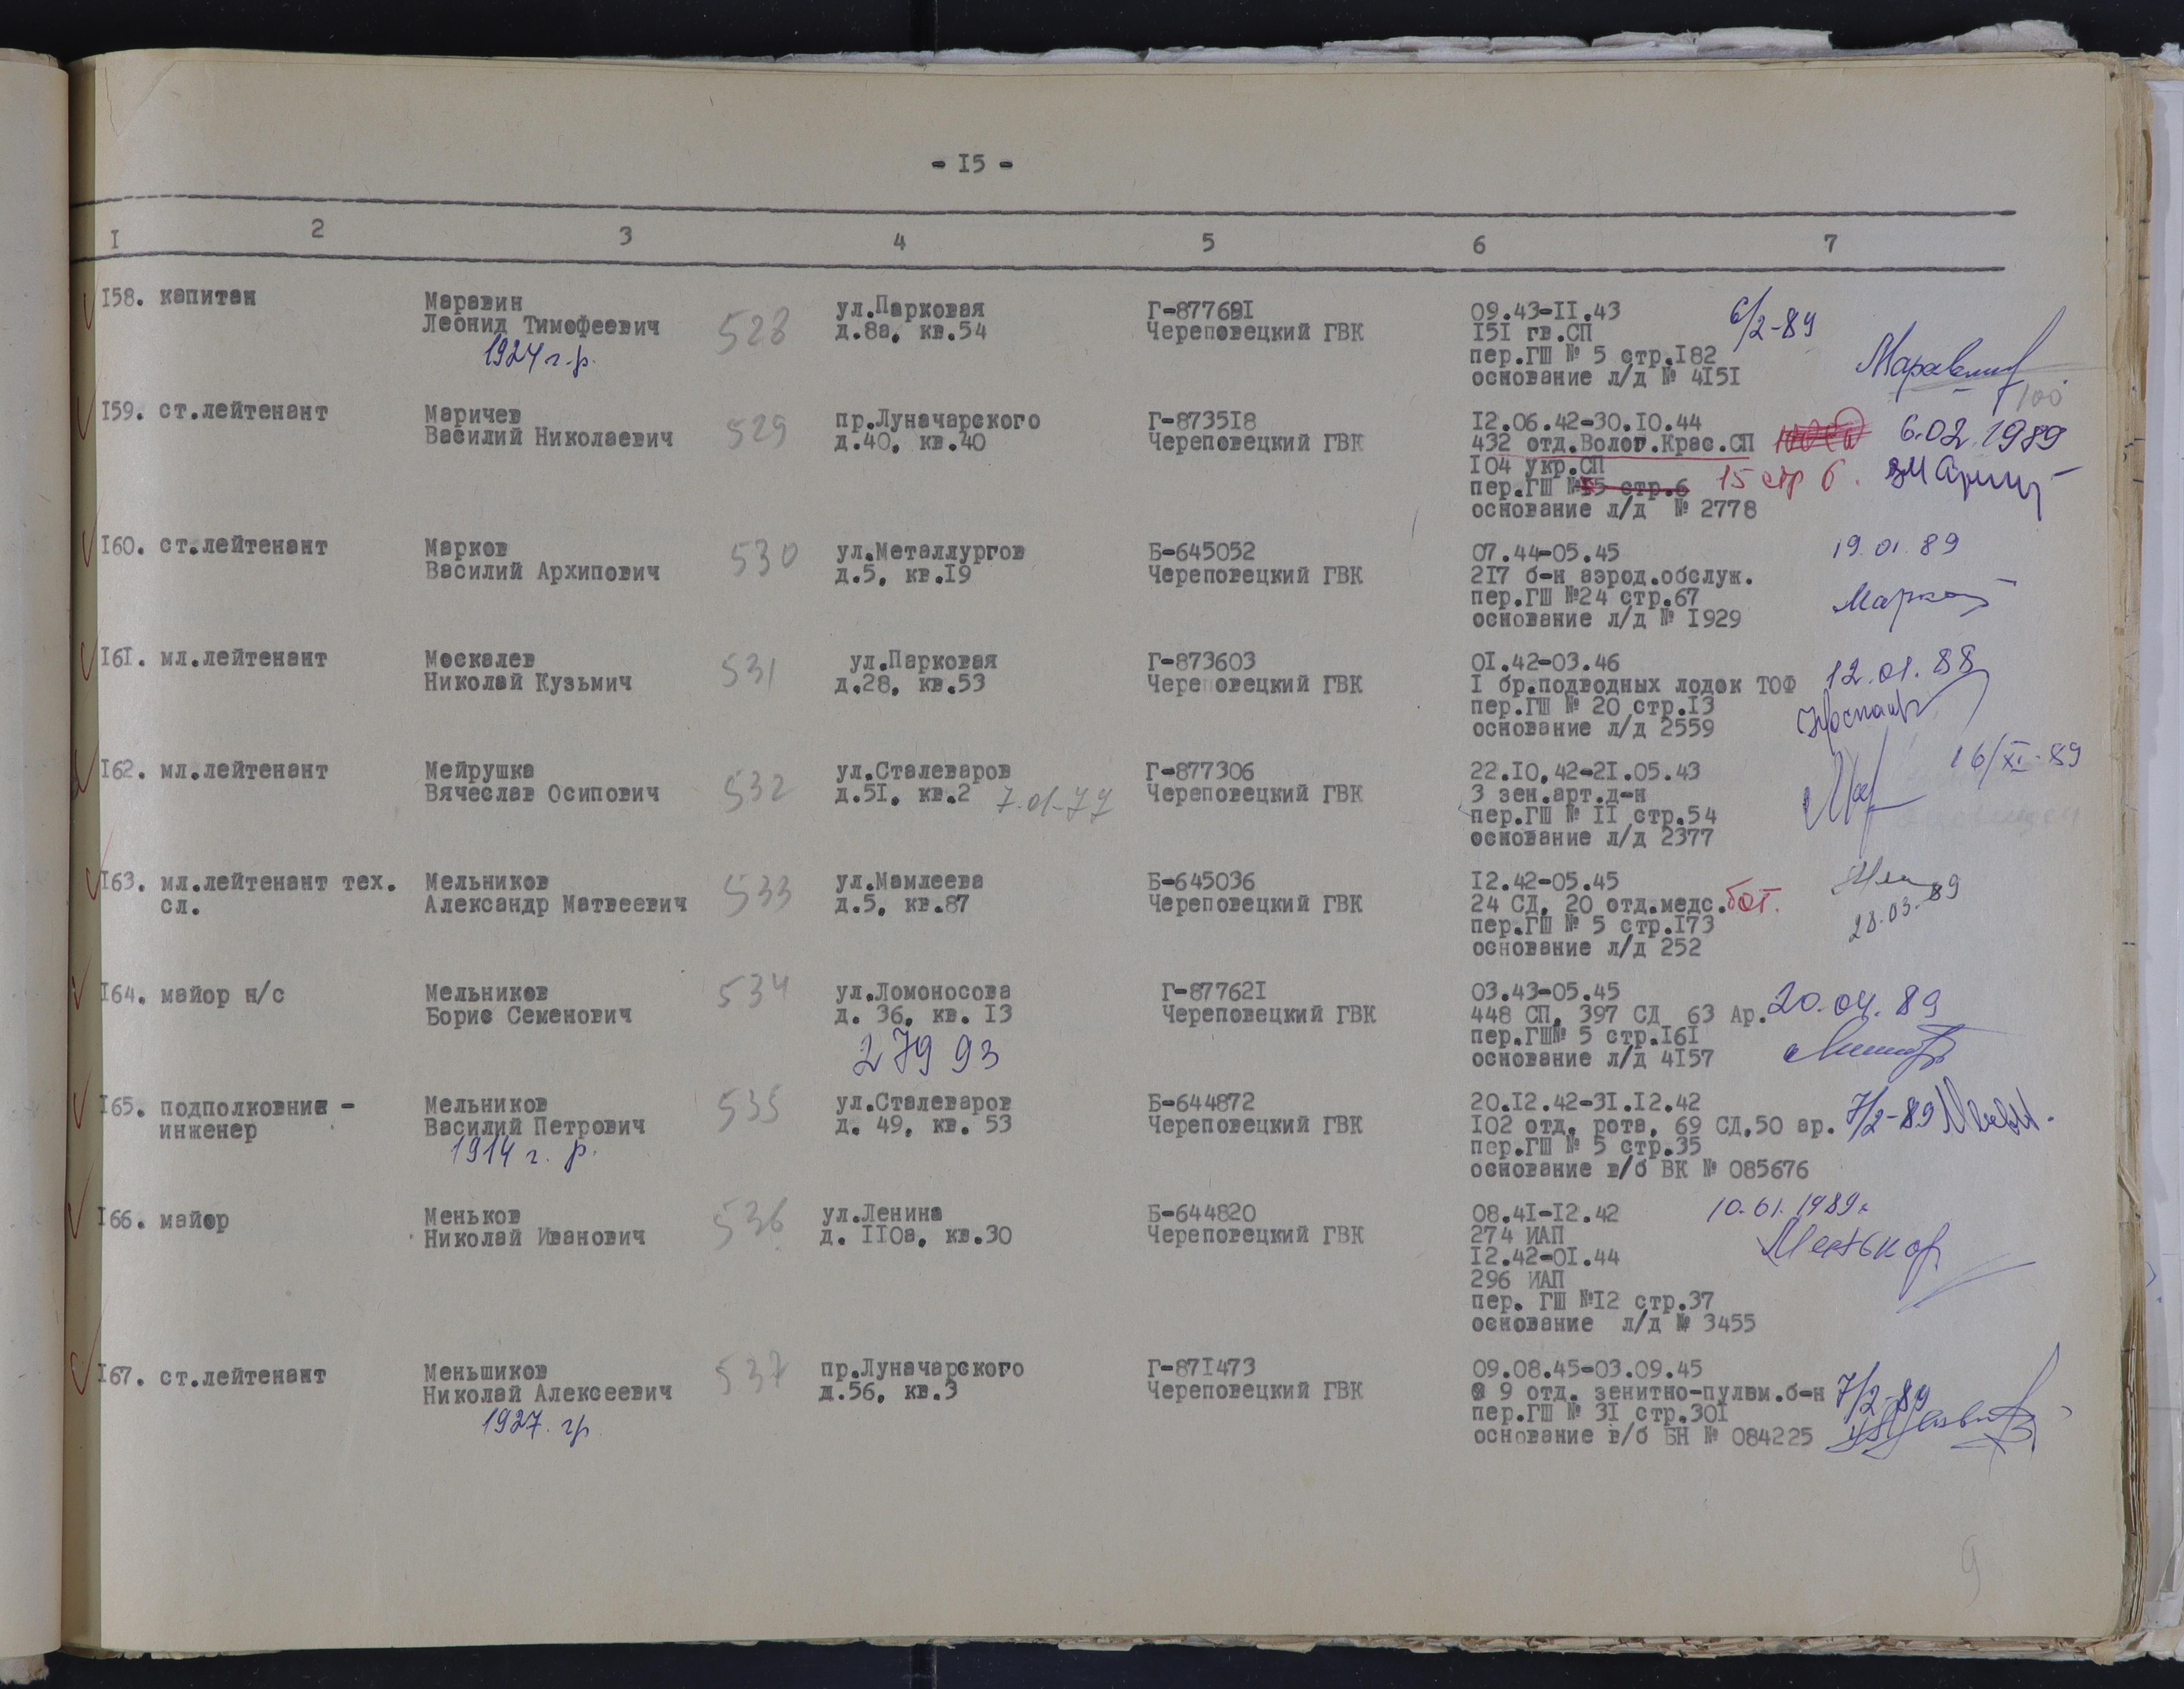 - I5 -
I 2 3 4 5 6 7
I58. капитан Маравин ул.Парковая Г-877691 09.43-II.43 6/2-89
Леонид Тимофеевич 528 д.8а, кв.54 Череповецкий ГВК I5I гв.СП
1924 г.р. пер.ГШ № 5 стр.I82
основание л/д № 4I5I
100
I59. ст.лейтенант Маричев пр.Луначарского Г-8735I8 I2.06.42-30.I0.44
Василий Николаевич 529 д.40, кв.40 Череповецкий ГВК 432 отд.Волог.Крас.СП 6.02.1989
I04 укр.СП
пер.ГШ №I5 стр.6 15 стр 6.
основание л/д № 2778
I60. ст.лейтенант Марков 530 ул.Металлургов Б-645052 07.44-05.45 19.01.89
Василий Архипович д.5, кв.I9 Череповецкий ГВК 2I7 б-н аэрод.обслуж.
пер.ГШ №24 стр.67
основание л/д № I929
I6I. мл.лейтенант Москалев 531 ул.Парковая Г-873603 0I.42-03.46 12.01.88
Николай Кузьмич д.28, кв.53 Череповецкий ГВК I бр.подводных лодок ТОФ
пер.ГШ № 20 стр.I3
основание л/д 2559
I62. мл.лейтенант Мейрушка ул.Сталеваров Г-877306 22.I0.42-2I.05.43 16/XI-89
Вячеслав Осипович 532 д.5I, кв.2 7-01-79 Череповецкий ГВК 3 зен.арт.д-н
пер.ГШ № II стр.54
основание л/д 2377
I63. мл.лейтенант тех. Мельников 533 ул.Мамлеева Б-645036 I2.42-05.45
сл. Александр Матвеевич д.5, кв.87 Череповецкий ГВК 24 СД, 20 отд.медс.бат. 28.03.89
пер.ГШ № 5 стр.I73
основание л/д 252
I64. майор н/с Мельников 534 ул.Ломоносова Г-87762I 03.43-05.45
Борис Семенович д. 36, кв. I3 Череповецкий ГВК 448 СП, 397 СД 63 Ар. 20.04.89
27993 пер.ГШ№ 5 стр.I6I
основание л/д 4I57
I65. подполковник - Мельников 535 ул.Сталеваров Б-644872 20.I2.42-3I.I2.42
инженер Василий Петрович д. 49, кв. 53 Череповецкий ГВК I02 отд. рота, 69 СД,50 ар. 7/2-89
1914 г. р. пер.ГШ № 5 стр.35
основание в/б ВК № 085676
I66. майор Меньков 536 ул.Ленина Б-644820 08.4I-I2.42 10.01.1989г
Николай Иванович д. II0а, кв.30 Череповецкий ГВК 274 ИАП
I2.42-0I.44 Меньков
296 ИАП
пер. ГШ №I2 стр.37
основание л/д № 3455
I67. ст.лейтенант Меньшиков 537 пр.Луначарского Г-87I473 09.08.45-03.09.45
Николай Алексеевич д.56, кв.3 Череповецкий ГВК 9 отд. зенитно-пулем.б-н 7/2-89
1927. гр. пер.ГШ № 3I стр.30I
основание в/б БН № 084225
9